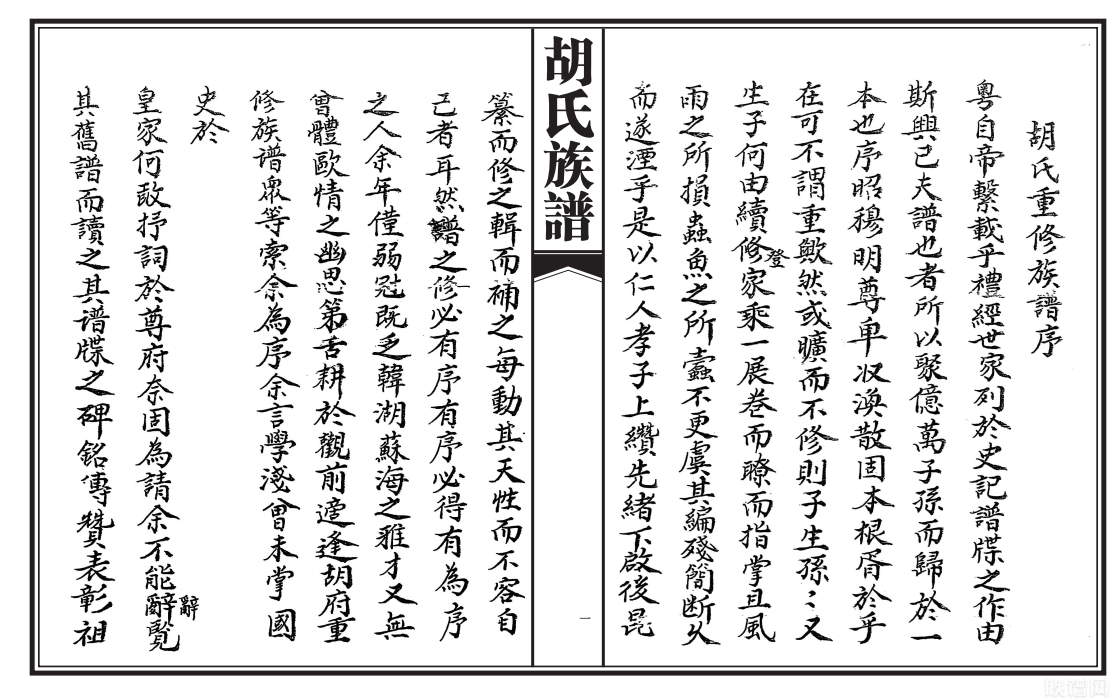 胡氏重修族譜序
粵自帝繫載乎禮經世家列於史記譜牒之作由
斯興已夫譜也者所以聚億萬子孫而歸於一
本也序昭穆明尊卑收渙散固本根胥於乎
在可不謂重歟然或曠而不修則子生孫〻又
生子何由續修登家乘一展卷而瞭而指掌且風
雨之所損蟲魚之所蠹不更虞其編殘簡断乆
而遂湮乎是以仁人孝子上纘先緒下啟後昆
胡氏族譜
一
纂而修之輯而補之每動其天性而不容自
已者耳然譜之修必有序有序必得有為序
之人余年僅弱冠既乏韓湖蘇海之雅才又無
曾體歐情之幽思第舌耕於觀前適逢胡府重
修族谱眾等索余為序余言學淺曾未掌國
史於
皇家何敢抒詞於尊府奈固為請余不能辭辭覧
其舊譜而讀之其谱牒之碑銘傳贊表彰祖
族谱网